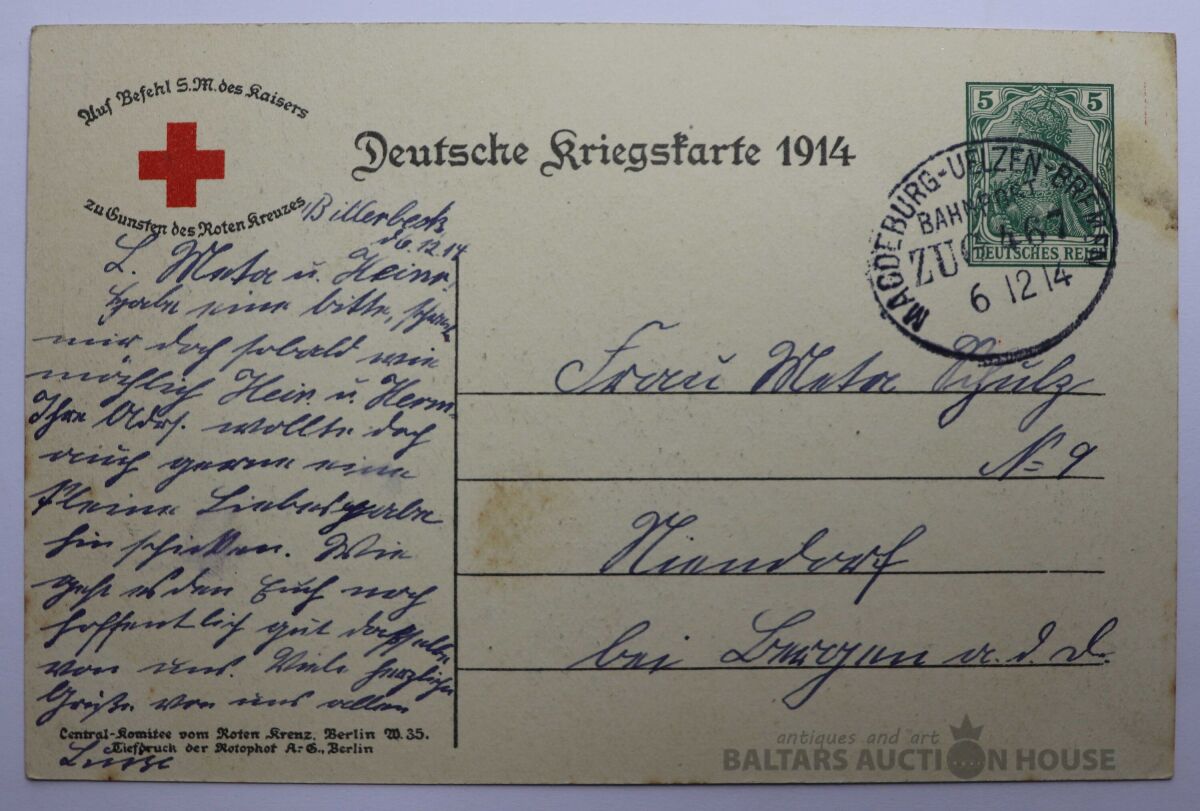 Auf Befehl S.M. des Kaisers
zu Gunsten des Roten Kreuzes
Deutsche Kriegskarte 1914
5 5
DEUTSCHES REICH
MAGDEBURG-UELZEN-BREMEN
BAHNPOST
ZUG 467
6 12 14
Billerbeck
d 6.12.14
L. Meta u. Heinr.
Habe eine bitte, schreib
mir doch sobald wie
möglich Hein. u. Herm.
Ihre Adrs. wollte doch
auch gerne eine
kleine Liebesgabe
hin schicken. Wie
geht es den Euch noch
hoffentlich gut dasselbe
von uns. Viele herzliche
Grüße von uns allen
Frau Meta Schulz
No 9
Niendorf
bei Bergen a. d. D.
Central-Komitee vom Roten Kreuz, Berlin W. 35.
Tiefdruck der Rotophot A.-G., Berlin
antiques and art
BALTARS AUCTION HOUSE